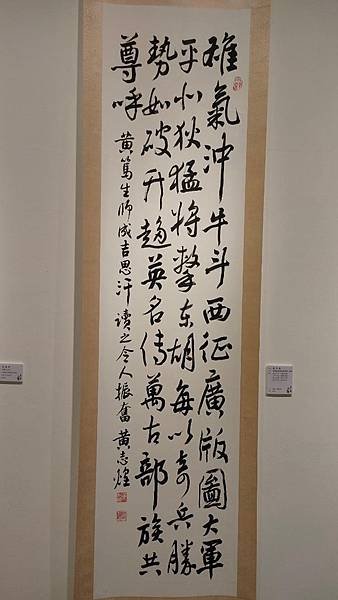 雄氣沖牛斗西征廣版圖大軍
平北狄猛將擊東胡每以奇兵勝
勢如破竹趨英名傳萬古部族共
尊呼 黃篤生師成吉思汗 讀之令人振奮 黃志煌